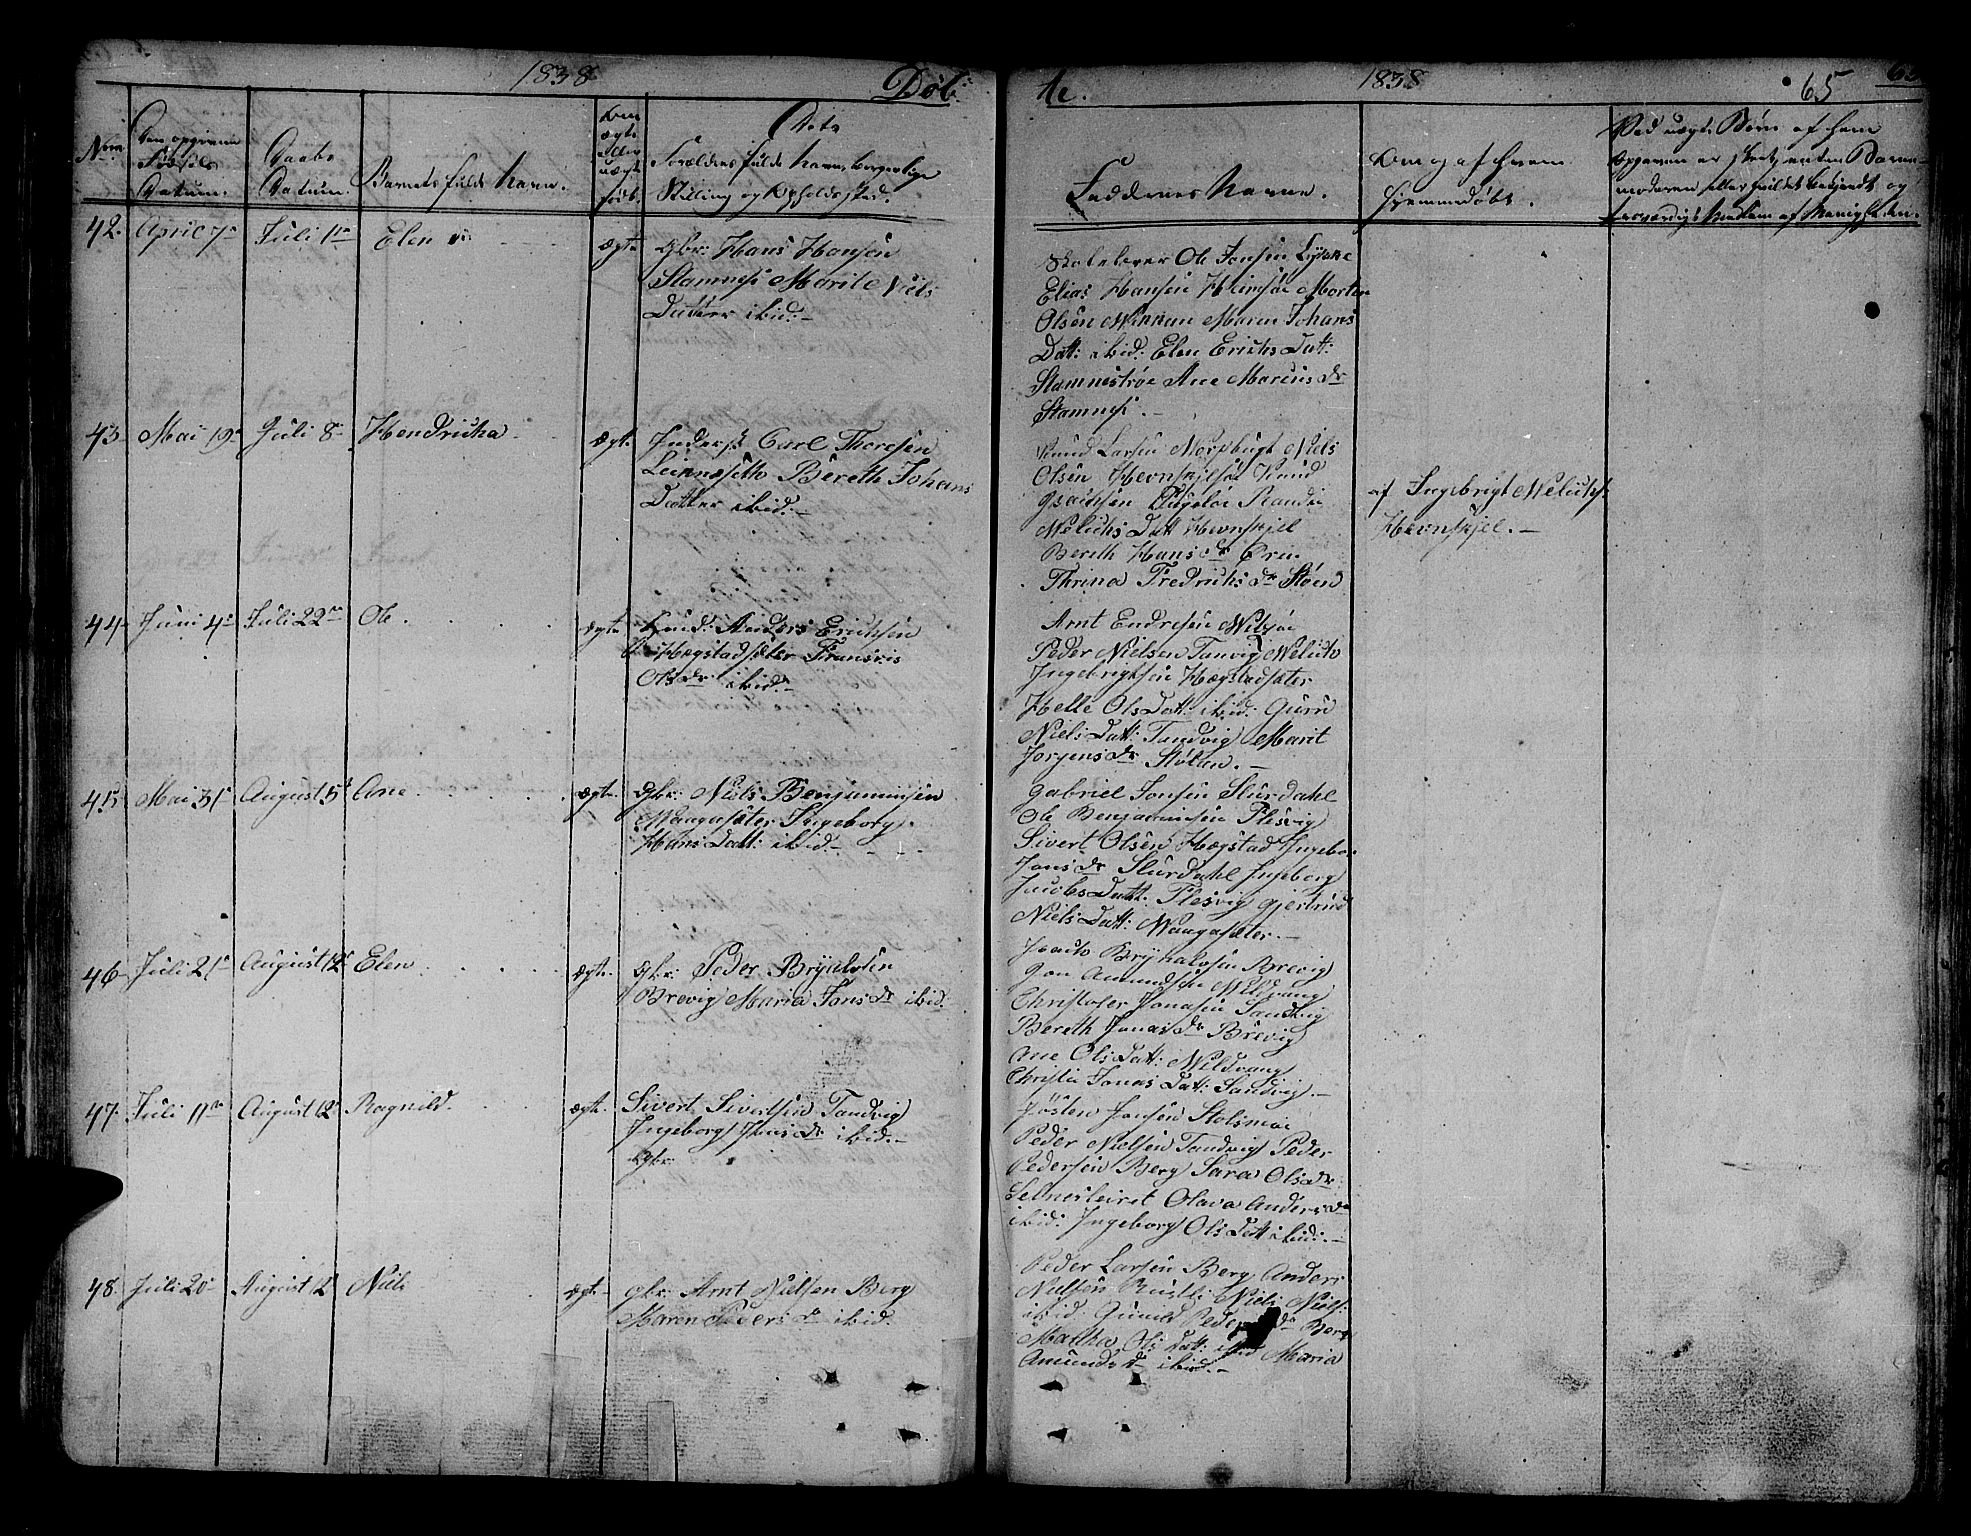 1838
Døb
te.
1838
65
Num
Den opgivne Fødsels Datum.
Daabs Datum.
Barnets fulde Navn.
Om ægte eller uægte født.
Dets
Forældres fulde Navn, borgerlige
Stilling og Opholdssted.
Faddernes Navne.
Om og af hvem
hjemmedøbt.
Ved uægte Børn af hvem
Opgaven er skeet, enten Barne-
moderen eller hvilket bekjendt og
troværdigt Medlem af Menigheden.
42. April 7de Juli 1ste Elen ægte gbr: Hans Hansen
Stamnesi Marit Niels
Datter ibid:-
Skolelærer Ole Jonsen
Elias Hansen Hemsøe Morten
Olsen Winnan Maren Johans
Dat: ibid: Elen Erichs Dat:
Stamnestrøe Ane Marcus dr
Stamnesi.-
43 Mai 19de Juli 8de Hendricha ægte Inders: Carl Thoresen
Leirnessetta Bereth Johans
Datter ibid:-
Knud Larsen Niels
Olsen Knud
Isachsen Randi
Melichs Datt Hevnskjel
Bereth Hans dr Øren
Thrina Fredrichs dr Støen
af Ingebrigt Melichs:
Hevnskjel.-
44 Juni 4de Juli 22de Ole ægte Huusm: Anders Erichsen
Høgstadsæter
Ols dr ibid:-
Arnt Endresen
Peder Nielsen Tanvig Melich
Ingebrigtsen Høgstadsæter
Helle Ols Datt: ibid: Guru
Niels Datt: Tandvig Marit
Jørgens dr Stølen.-
45 Mai 31te August 5te Ane ægte gbr: Niels Benjaminsen
Waagasæter Ingeborg
Hans Datt: ibid:-
Gabriel Jonsen Slurdahl
Ole Benjaminsen Flesvig
Sivert Olsen Høgstad Ingebor
Jons dr Slurdahl Ingeborg
Jacobs Datt: Flesvig Gjertrud
Niels Datt: Waagasæter.-
46 Juli 21de August 12te Elen ægte gbr: Peder Brynelsen
Brevig Maria Jons dr ibid.
Brynelsen Brevig
Jon Amundsen Mildvang
Christofer Jonasen Sandvig
Bereth Jonas dr Brevig
Ane Ols Datt: Mildvang
Christie Jonas Datt: Sandvig.-
47. Juli 11te August 12te Ragnild. ægte. Sivert Sivertsen Tandvig
Ingeborg Jens dr ibid:-
Gbr:
Jøsten Jonsen Stolsmoe
Peder Nielsen Tandvig Peder
Pedersen Berg Sara Ols dr
Selnesleiret Olava Anders dr
ibid: Ingeborg Ols Datt ibid:-
48. Juli 20de August 12 Niels ægte gbr: Arnt Nielsen Berg
Maren Peders dr ibid.
Peder Larsen Berg Anders
Nielsen Niels Niels:
ibid: Gunild Peders dr Berg
Martha Ols Datt: ibid Maria
Amunds dr ibid:-